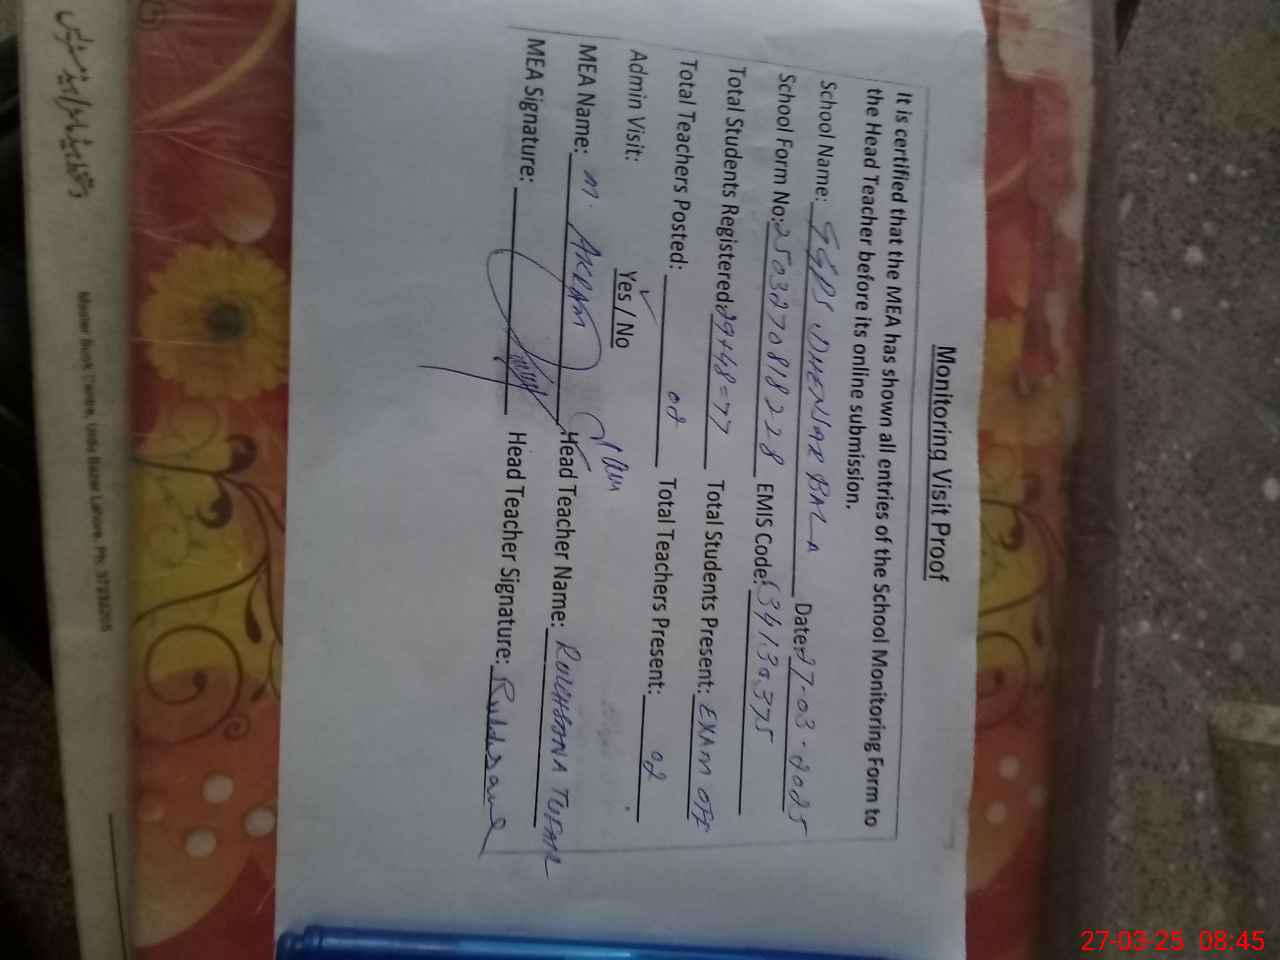 Monitoring Visit Proof
It is certified that the MEA has shown all entries of the School Monitoring Form to
the Head Teacher before its online submission.
School Name: GGPS DHENGAR BALA Date: 27-03-2025
School Form No: 2503270818228 EMIS Code: 34130375
Total Students Registered: 29+48=77 Total Students Present: EXAM OFF
Total Teachers Posted: 02 Total Teachers Present: 02
Admin Visit: Yes / No
MEA Name: M. AKRAM Head Teacher Name: RUKHSANA TUFAIL
MEA Signature: Head Teacher Signature:
Master Book Centre, Urdu Bazar Lahore. Ph:
27-03-25 08:45